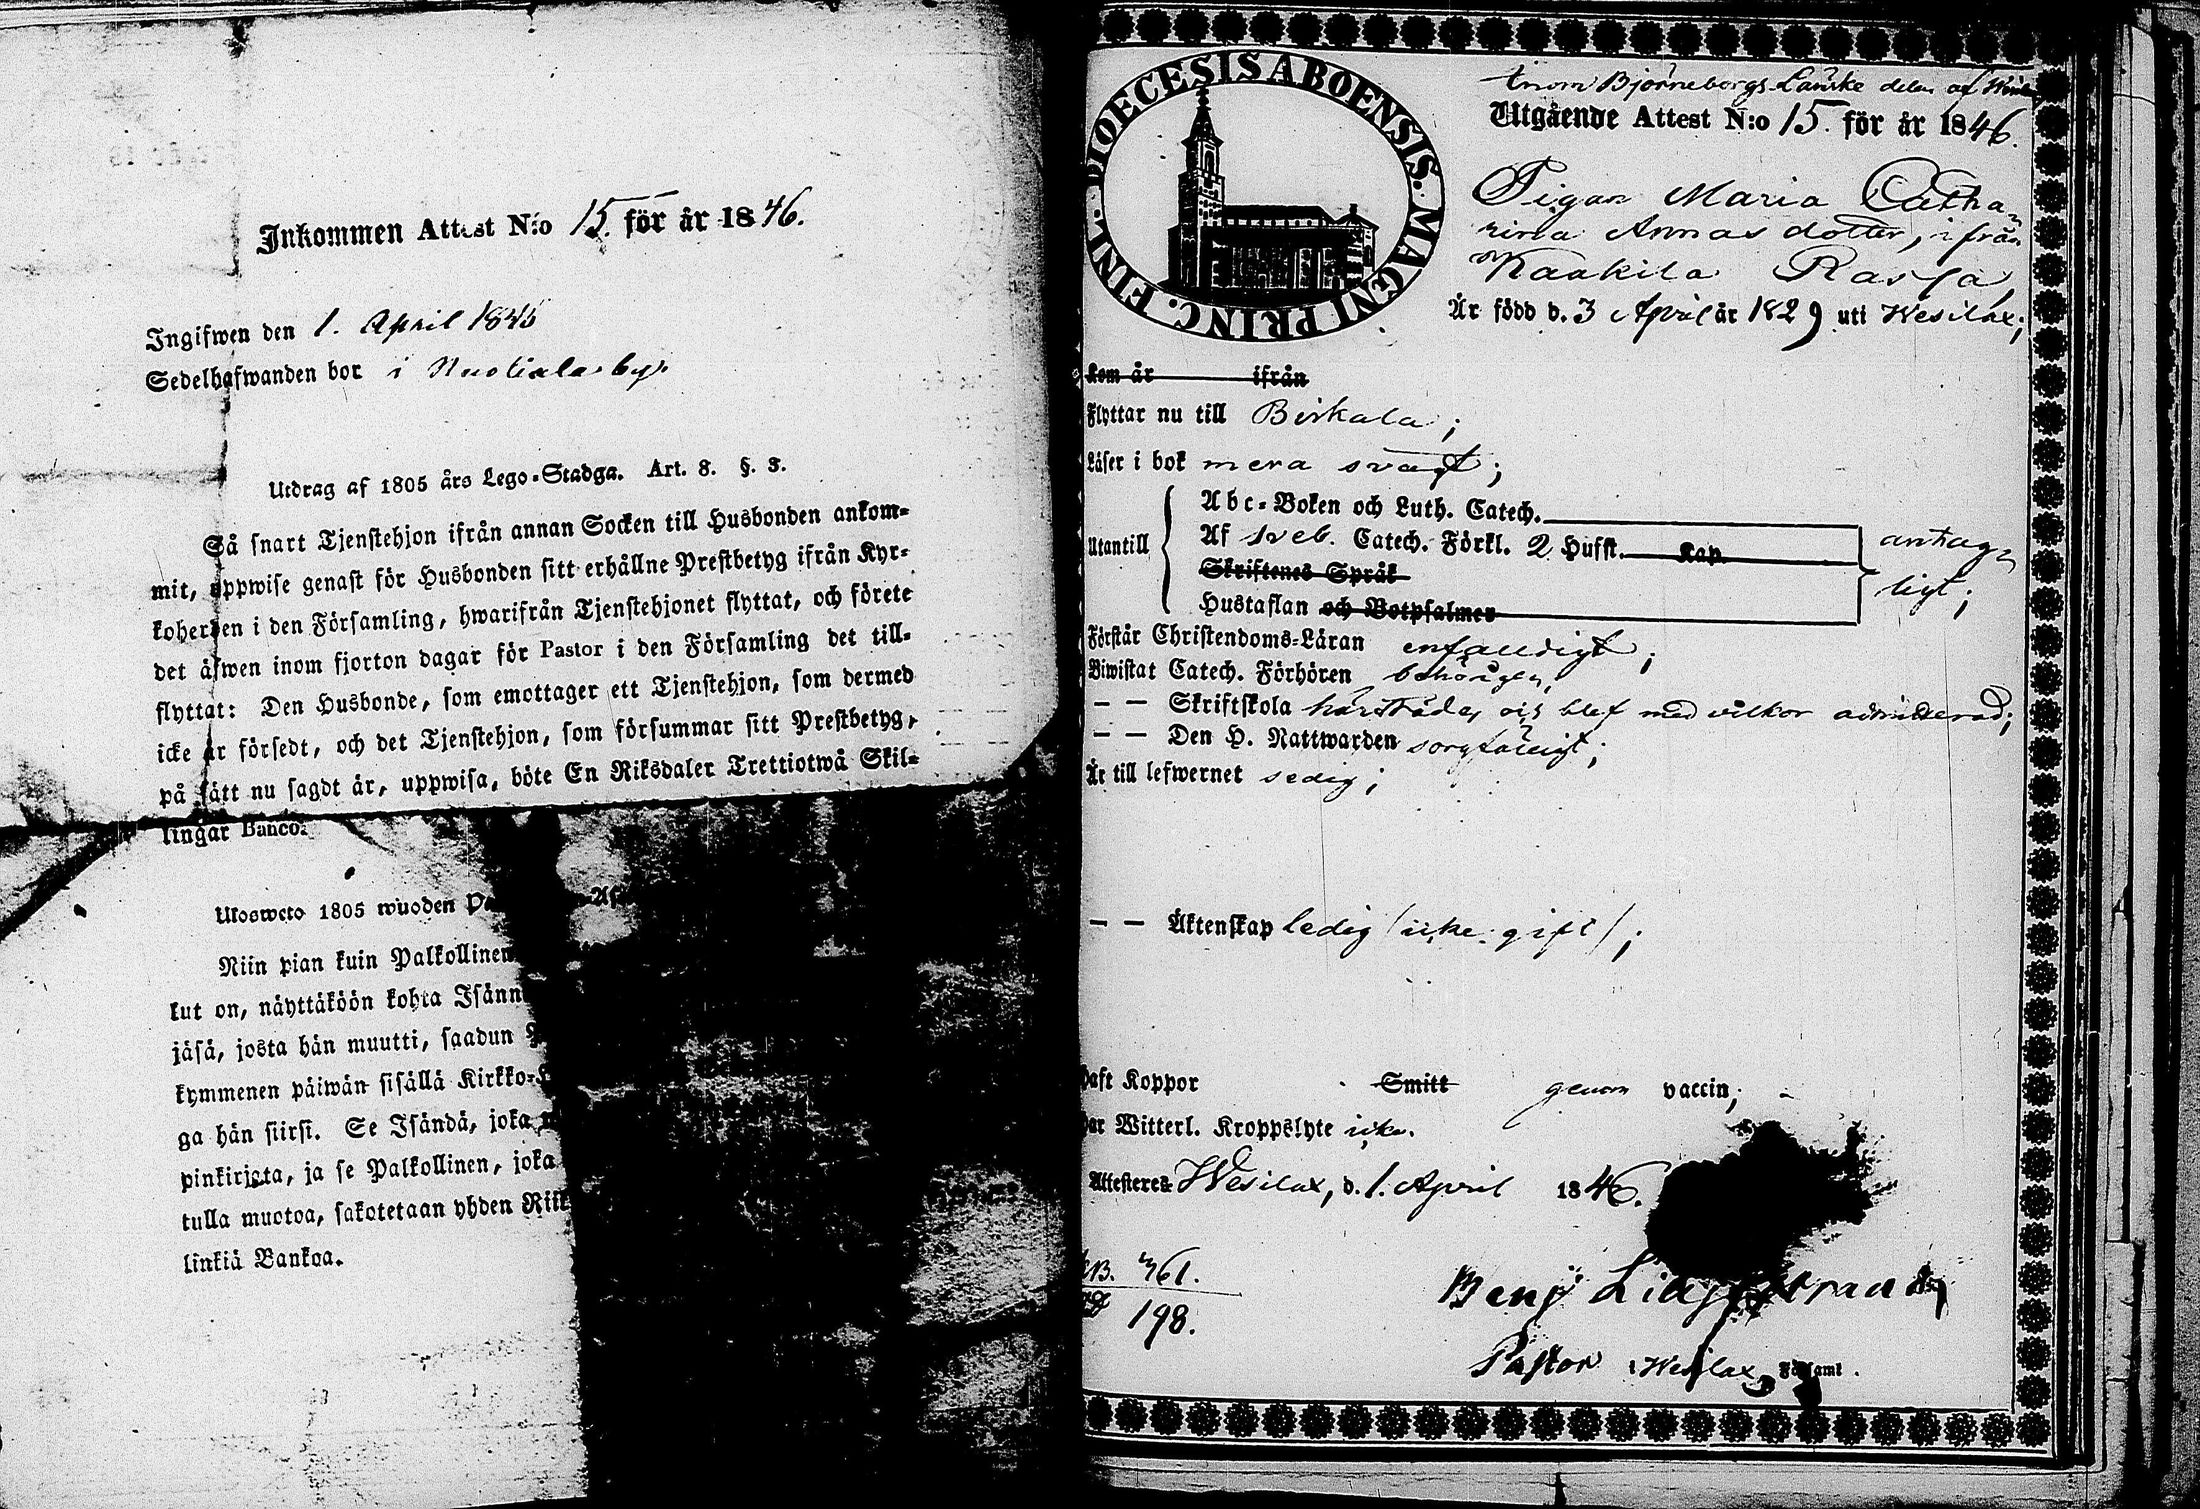 Inkommen Attest N:o 15. för år 1846.
Ingifwen den 1. April 1846
Sedelhafwanden bor i Nuoliala by.
Utdrag af 1805 års Lego-Stadga. Art. 8. §. 3.
Så snart Tjenstehjon ifrån annan Socken till Husbonden ankom-
mit, uppwise genast för Husbonden sitt erhållne Prestbetyg ifrån Kyr-
koherden i den Församling, hwarifrån Tjenstehjonet flyttat, och förete
det äfwen inom fjorton dagar för Pastor i den Församling det till-
flyttat: Den Husbonde, som emottager ett Tjenstehjon, som dermed
icke är försedt, och det Tjenstehjon, som försummar sitt Prestbetyg,
på sätt nu sagdt är, uppwisa, böte En Riksdaler Trettiotwå Skil-
lingar Banco.
Ulosweto 1805 wuoden
Niin pian kuin Palkollinen
kut on, näyttäköön kohta Isänn
jäsä, josta hän muutti, saadun
kymmenen päiwän sisällä Kirkko-
ga hän siirsi. Se Isändä, joka
pinkirjata, ja se Palkollinen, joka
tulla muotoa, sakotetaan yhden Riik
linkiä Bankoa.
DIOECESIS ABOENSIS. MAGNI PRINC. FINL.
inom Björneborgs Länske delen af
Utgående Attest N:o 15. för år 1846.
Pigan Maria Catha
rina Annasdotter, ifrån
Kaakila Rassa,
Är född d. 3 April år 1829 uti Wesilax;
kom år ifrån
Flyttar nu till Birkala;
Läser i bok mera svagt;
Utantill
Abc-Boken och Luth. Catech.
Af Sveb. Catech. Förkl. 2 Hufst. Kap.
Skriftenes Språk
Hustaflan och Botpsalmer
antag
ligt;
Förstår Christendoms-Läran enfaldigt;
Biwistat Catech. Förhören behörigen,
— — Skriftskola härstädes och blef med vilkor admitterad;
— — Den H. Nattwarden sorgfälligt;
Är till lefwernet sedig;
— — Äktenskap ledig /icke gift/;
haft Koppor Smitt genom vaccin;
har Witterl. Kroppslyte icke.
Attesteres Wesilax, d. 1. April 1846.
KB. 361.
198.
Benj Lilljestrand
Pastor i Wesilax Församl.